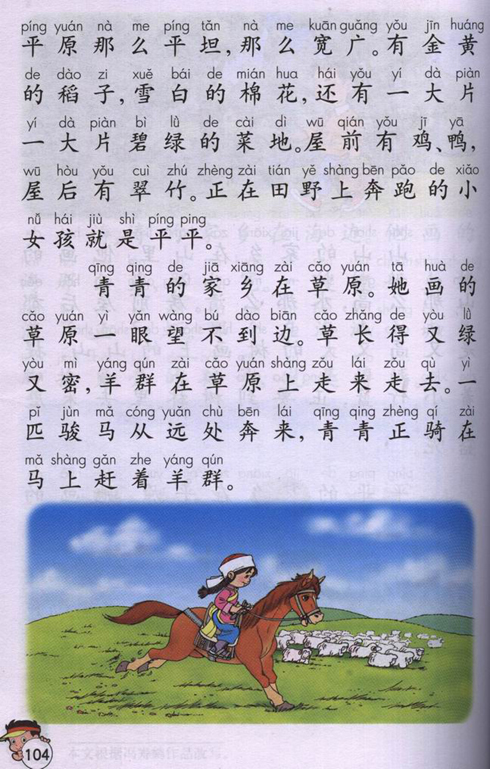 píng yuán nà me píng tǎn nà me kuān guǎng yǒu jīn huáng
平原那么平坦,那么宽广。有金黄
de dào zi xuě bái de mián hua hái yǒu yí dà piàn
的稻子,雪白的棉花,还有一大片
yí dà piàn bì lǜ de cài dì wū qián yǒu jī yā
一大片碧绿的菜地。屋前有鸡、鸭,
wū hòu yǒu cuì zhú zhèng zài tián yě shàng bēn pǎo de xiǎo
屋后有翠竹。正在田野上奔跑的小
nǚ hái jiù shì píng ping
女孩就是平平。
qīng qing de jiā xiāng zài cǎo yuán tā huà de
青青的家乡在草原。她画的
cǎo yuán yì yǎn wàng bú dào biān cǎo zhǎng de yòu lǜ
草原一眼望不到边。草长得又绿
yòu mì yáng qún zài cǎo yuán shàng zǒu lái zǒu qù yì
又密,羊群在草原上走来走去。一
pǐ jùn mǎ cóng yuǎn chù bēn lái qīng qing zhèng qí zài
匹骏马从远处奔来,青青正骑在
mǎ shàng gǎn zhe yáng qún
马上赶着羊群。
104